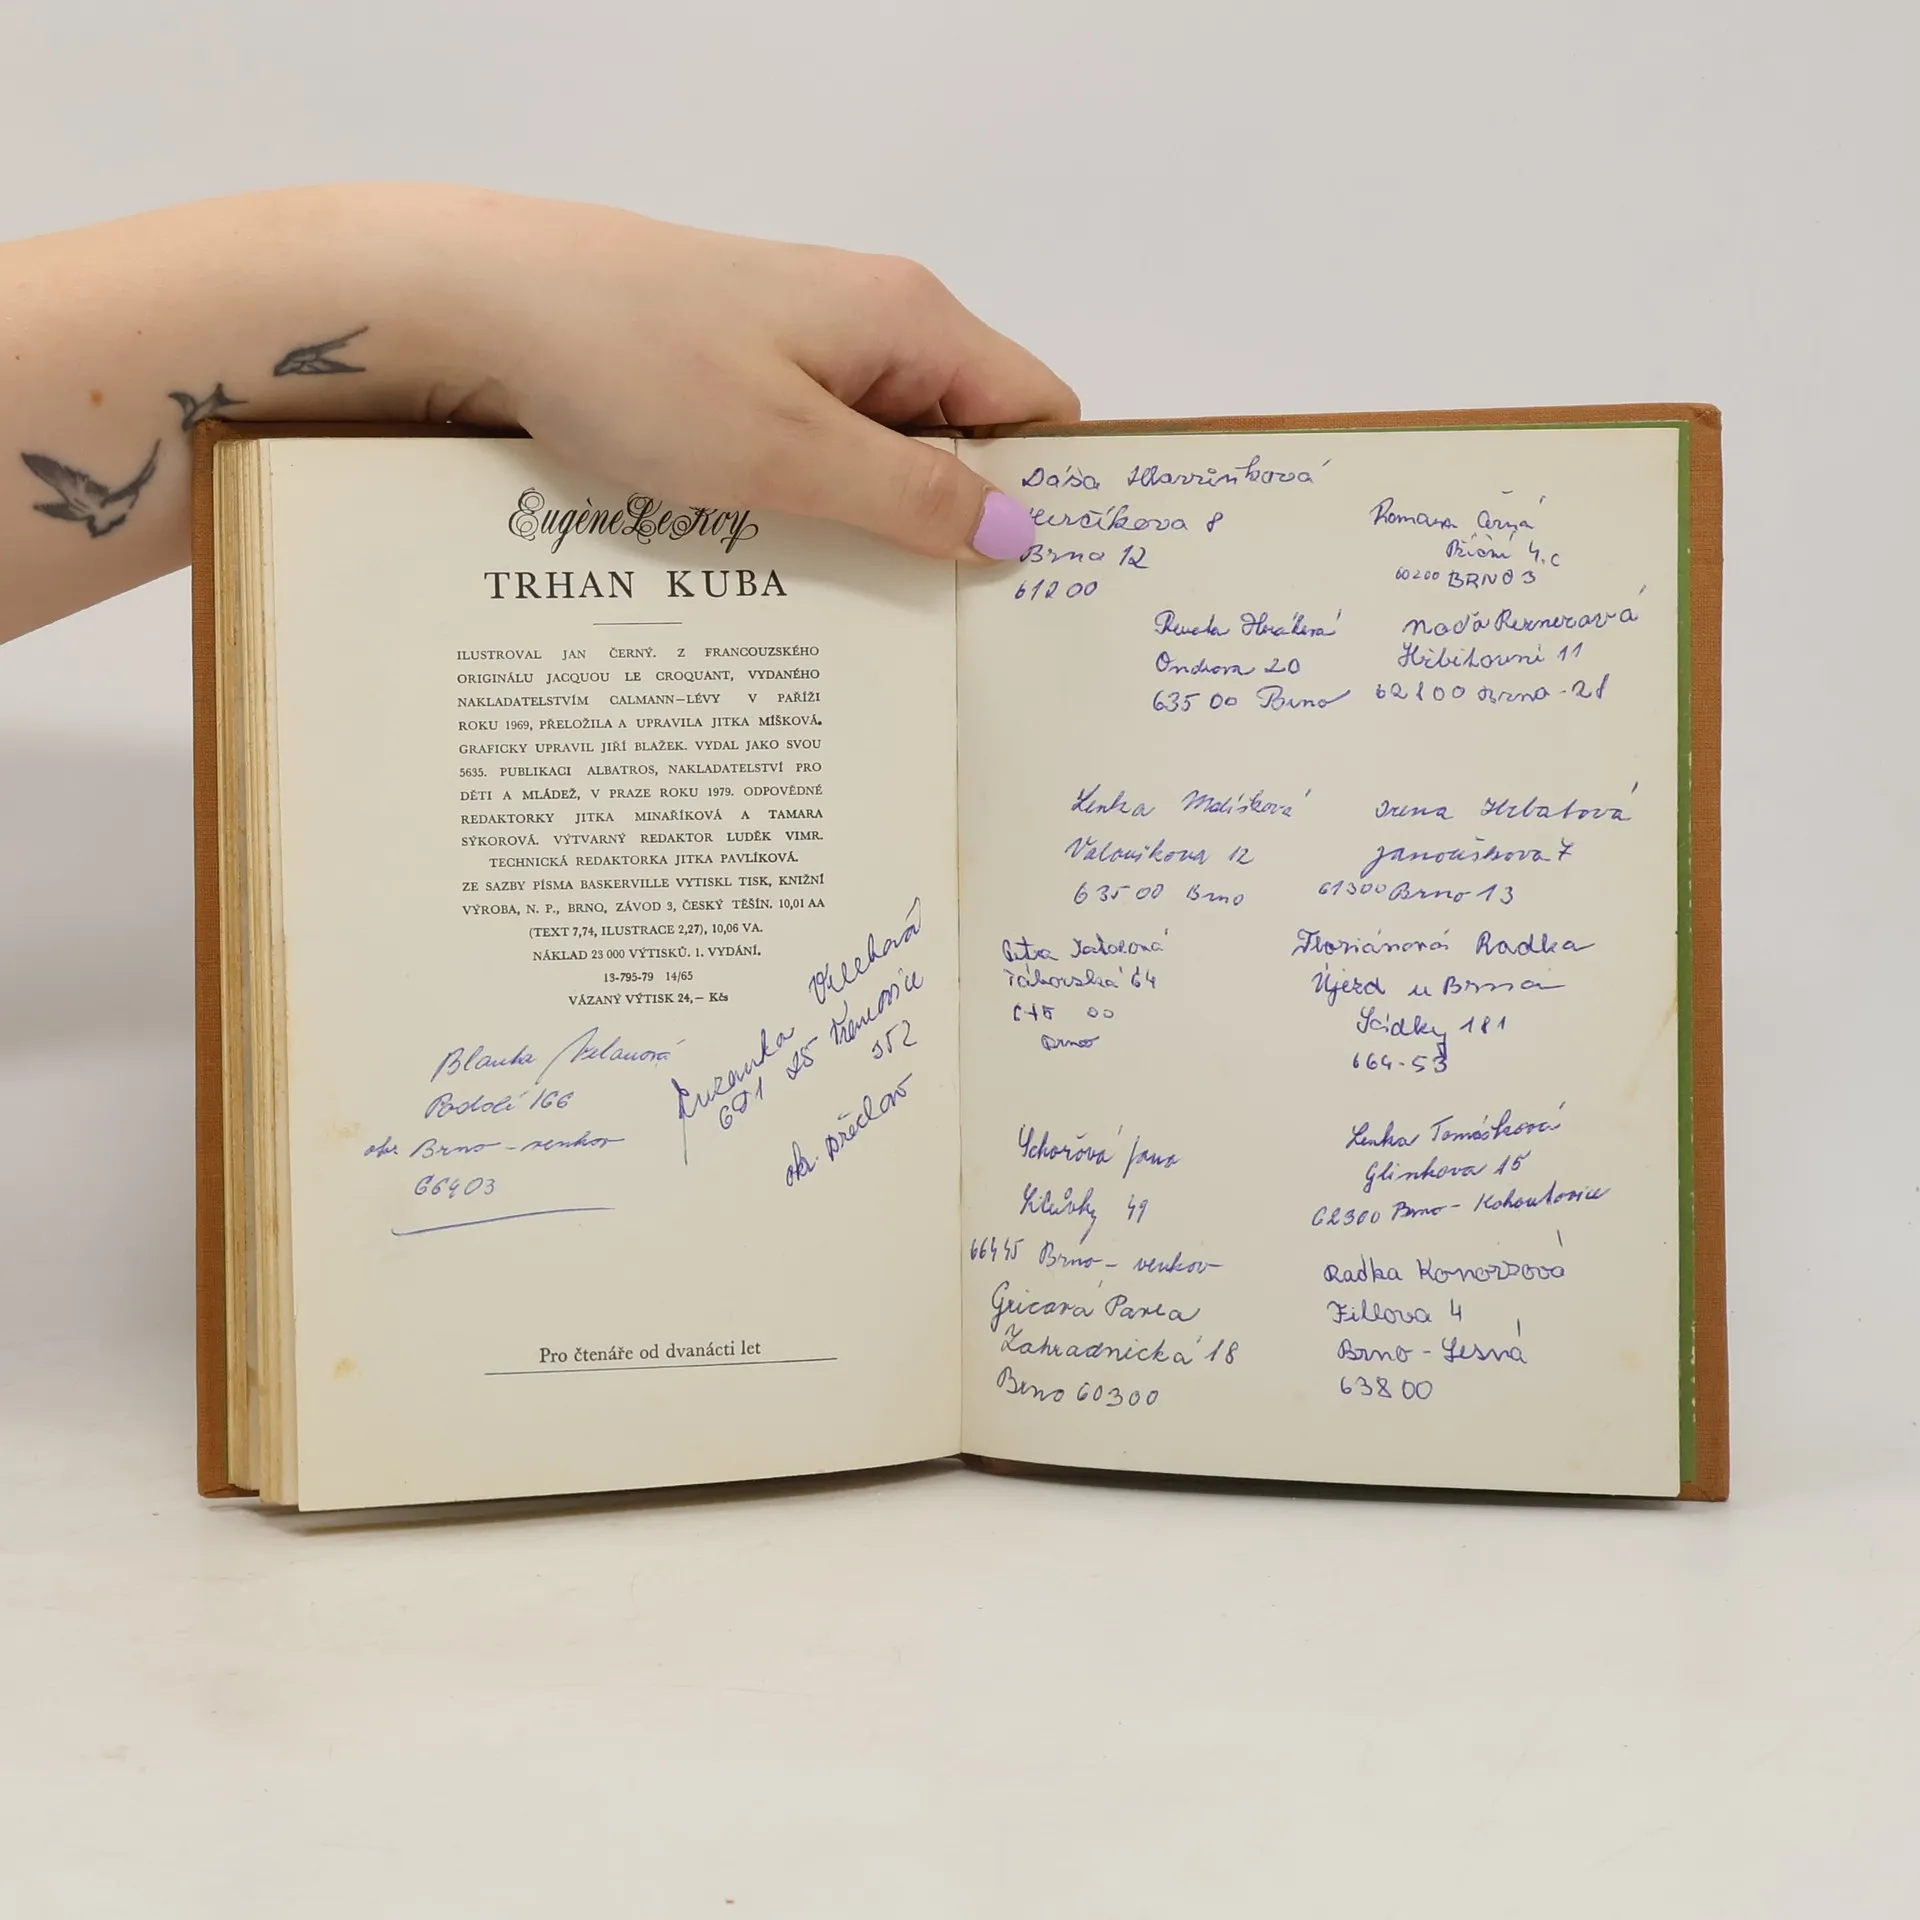 Eugène Le Roy
TRHAN KUBA
ILUSTROVAL JAN ČERNÝ. Z FRANCOUZSKÉHO
ORIGINÁLU JACQUOU LE CROQUANT, VYDANÉHO
NAKLADATELSTVÍM CALMANN—LÉVY V PAŘÍŽI
ROKU 1969, PŘELOŽILA A UPRAVILA JITKA MÍŠKOVÁ.
GRAFICKY UPRAVIL JIŘÍ BLAŽEK. VYDAL JAKO SVOU
5635. PUBLIKACI ALBATROS, NAKLADATELSTVÍ PRO
DĚTI A MLÁDEŽ, V PRAZE ROKU 1979. ODPOVĚDNÉ
REDAKTORKY JITKA MINAŘÍKOVÁ A TAMARA
SÝKOROVÁ. VÝTVARNÝ REDAKTOR LUDĚK VIMR.
TECHNICKÁ REDAKTORKA JITKA PAVLÍKOVÁ.
ZE SAZBY PÍSMA BASKERVILLE VYTISKL TISK, KNIŽNÍ
VÝROBA, N. P., BRNO, ZÁVOD 3, ČESKÝ TĚŠÍN. 10,01 AA
(TEXT 7,74, ILUSTRACE 2,27), 10,06 VA.
NÁKLAD 23 000 VÝTISKŮ. 1. VYDÁNÍ.
13-795-79 14/65
VÁZANÝ VÝTISK 24,— Kčs
Blanka
Podolí 166
okr. Brno-venkov
66403
Zuzanka
691 25 Vranovice
352
okr. Břeclav
Pro čtenáře od dvanácti let
Dáša
Herčíkova 8
Brno 12
61200
Romana Černá
Příční 4.c
60200 BRNO 3
Renata Horáková
Ondrova 20
635 00 Brno
Naďa
Hřbitovní 11
62100 Brno-21
Lenka
Valouškova 12
635 00 Brno
Irena Hrbatová
Janouškova 7
61300 Brno 13
Petra
Táborská 64
615 00
Brno
Floriánová Radka
Újezd u Brna
Sídky 181
664-53
Schořová Jana
Silůvky 49
66445 Brno-venkov
Lenka Tomášková
Glinkova 15
62300 Brno-Kohoutovice
Gricová Pavla
Zahradnická 18
Brno 60300
Radka
Fillova 4
Brno-Lesná
63800